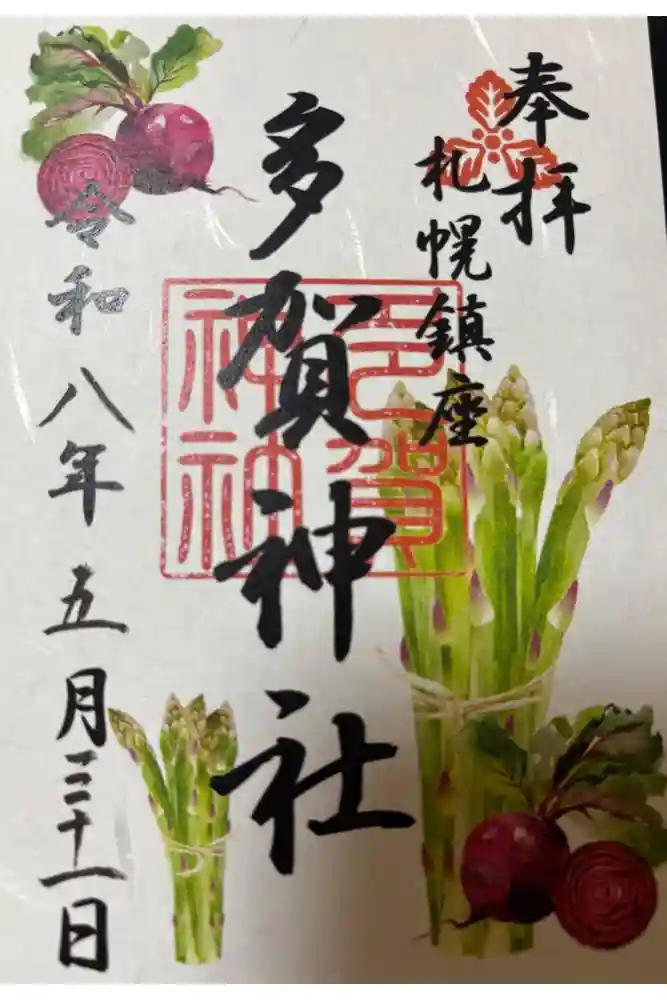 奉拝
札幌鎮座
多賀神社
多賀神社
令和八年五月三十一日